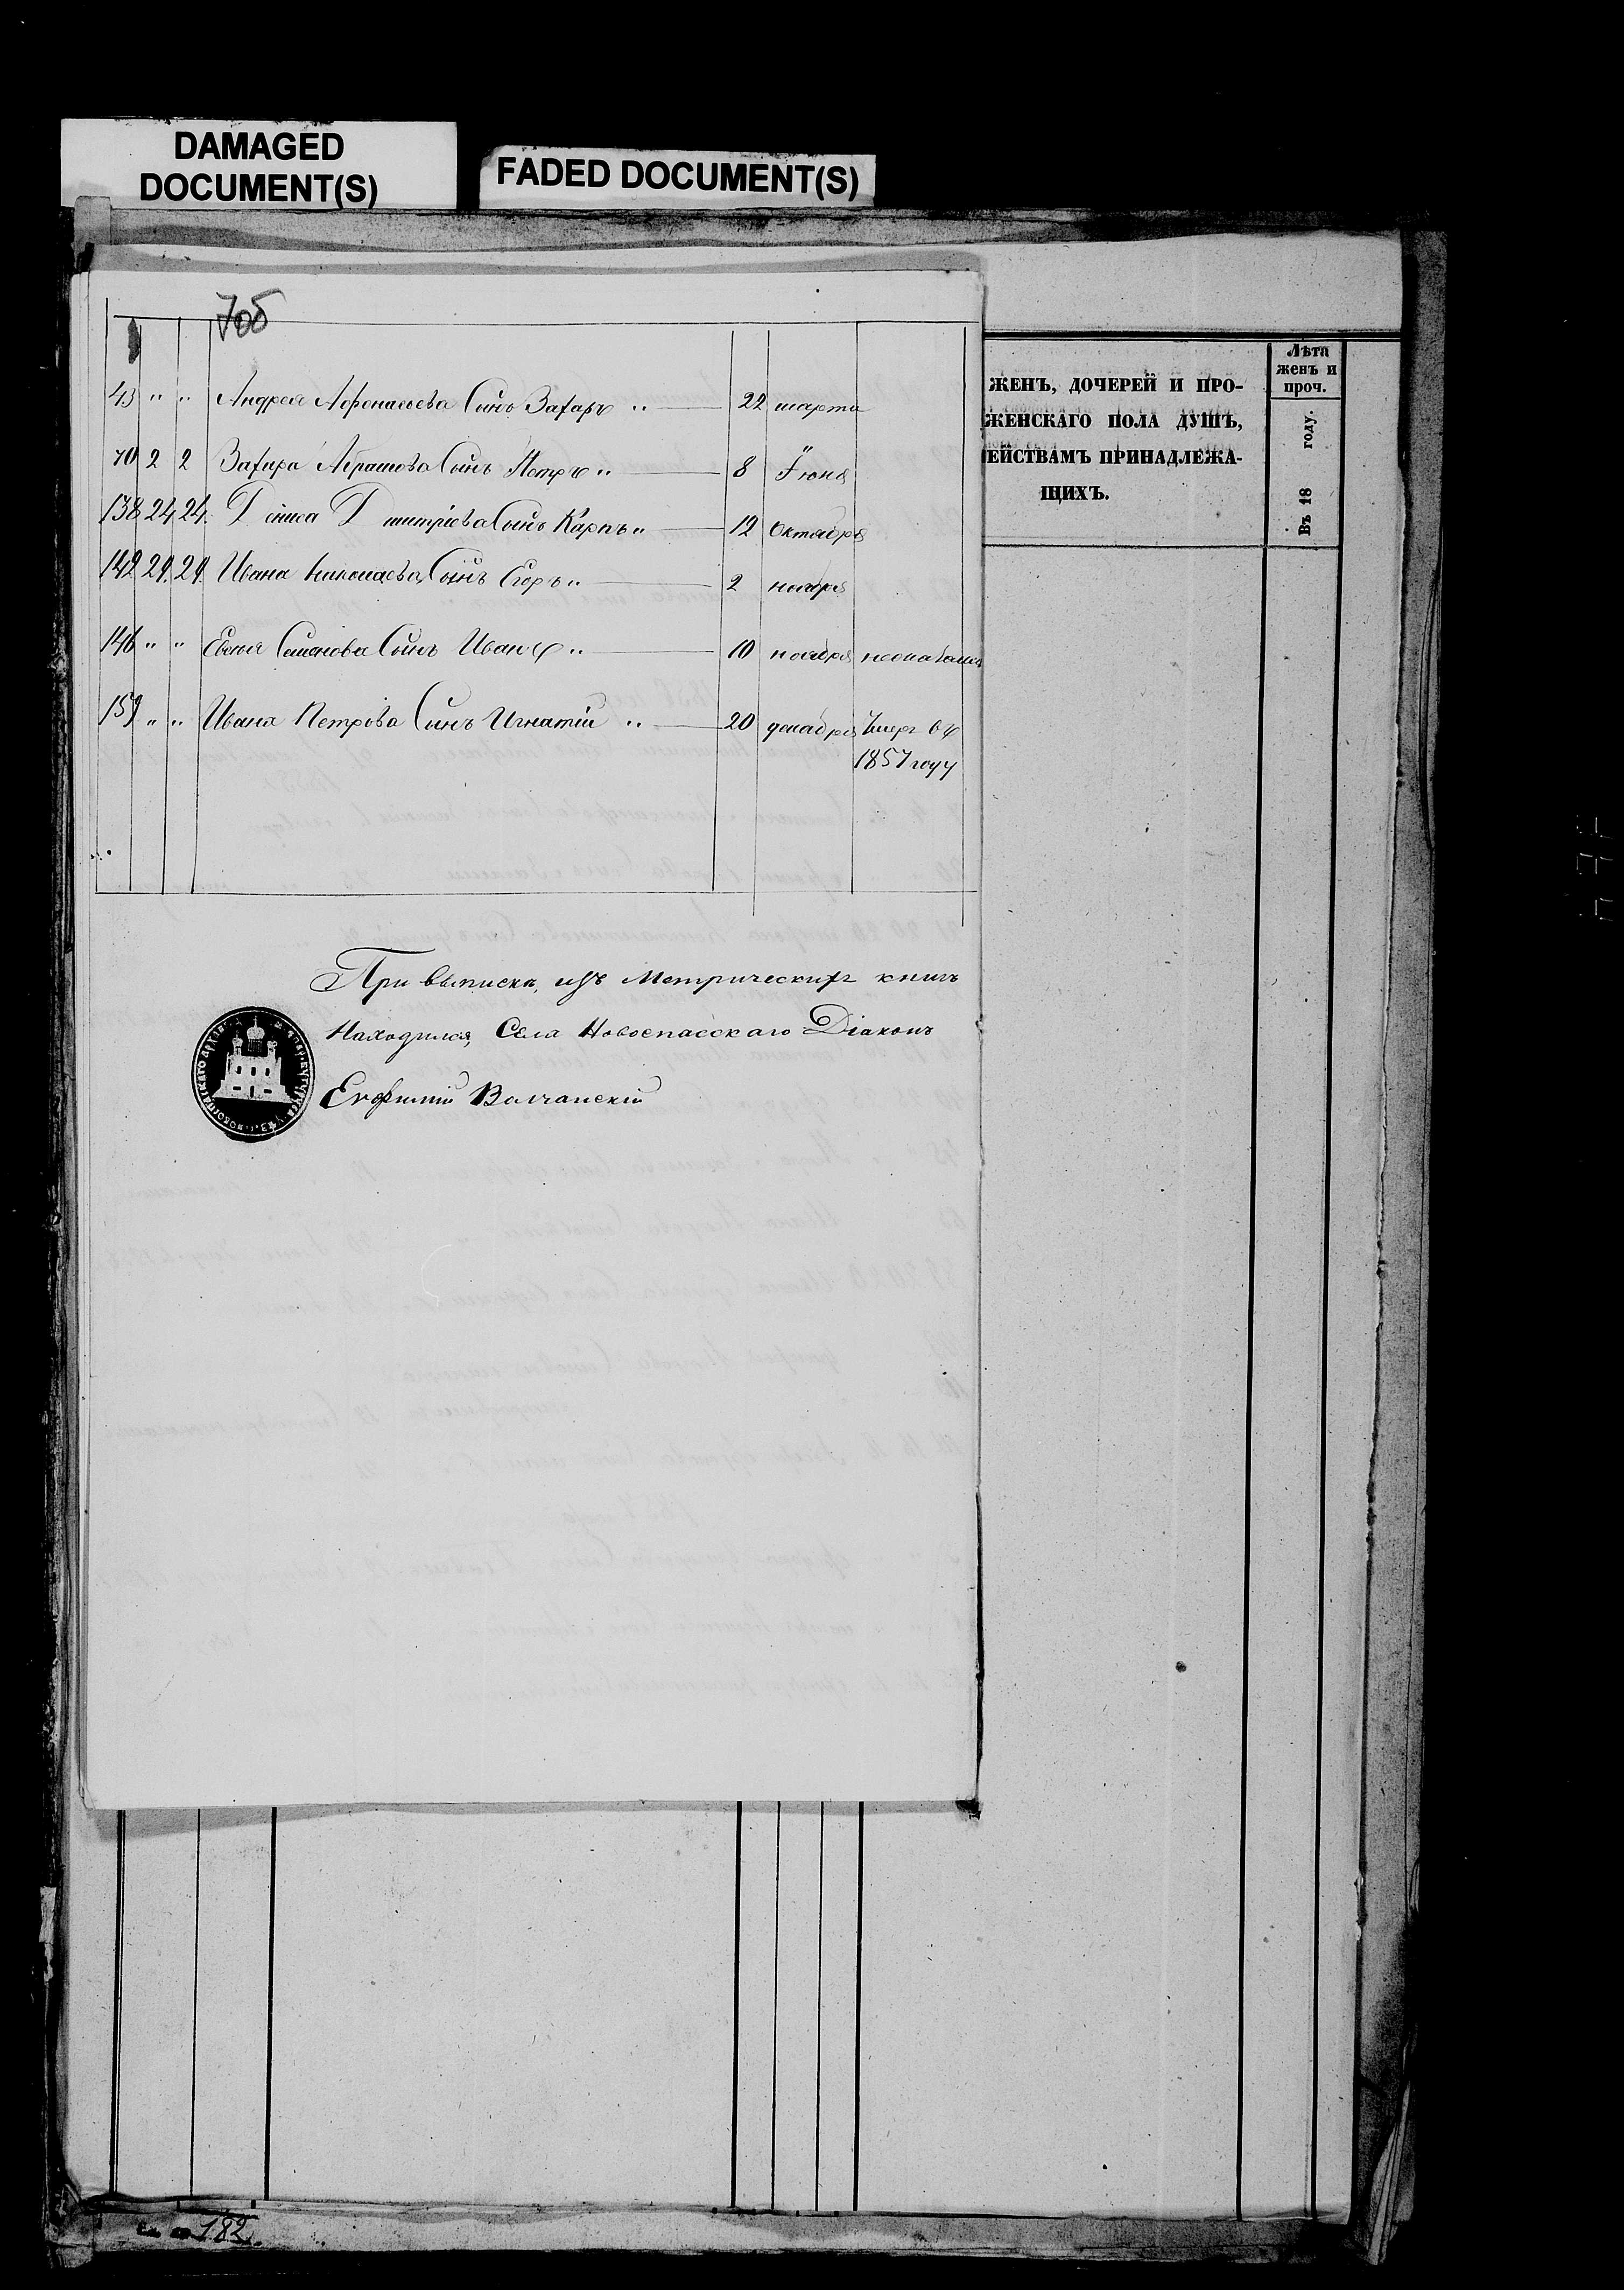 DAMAGED
DOCUMENT(S)
FADED DOCUMENT(S)
70б
43 " " Андрея Афонасьева Сынъ Захаръ " 22 марта
70 2 2 Захара Абрамова Сынъ Петръ " 8 Іюня
138 24 24 Дениса Дмитріева Сынъ Карпъ " 12 Октября
142 29 29 Ивана Николаева Сынъ Егоръ " 2 ноября
146 " " Семенова Сынъ Иванъ " 10 ноября
159 " " Ивана Петрова Сынъ Игнатій " 20 декабря Умеръ въ
1857 году
При выписке, изъ Метрическихъ книгъ
Находился, Села Новоспасскаго Діаконъ
Евфимій Волчанскій
ЖЕНЪ, ДОЧЕРЕЙ И ПРО-
ЖЕНСКАГО ПОЛА ДУШЪ,
ЕЙСТВАМЪ ПРИНАДЛЕЖА-
ЩИХЪ.
Лѣта
женъ и
проч.
Въ 18 году.
182